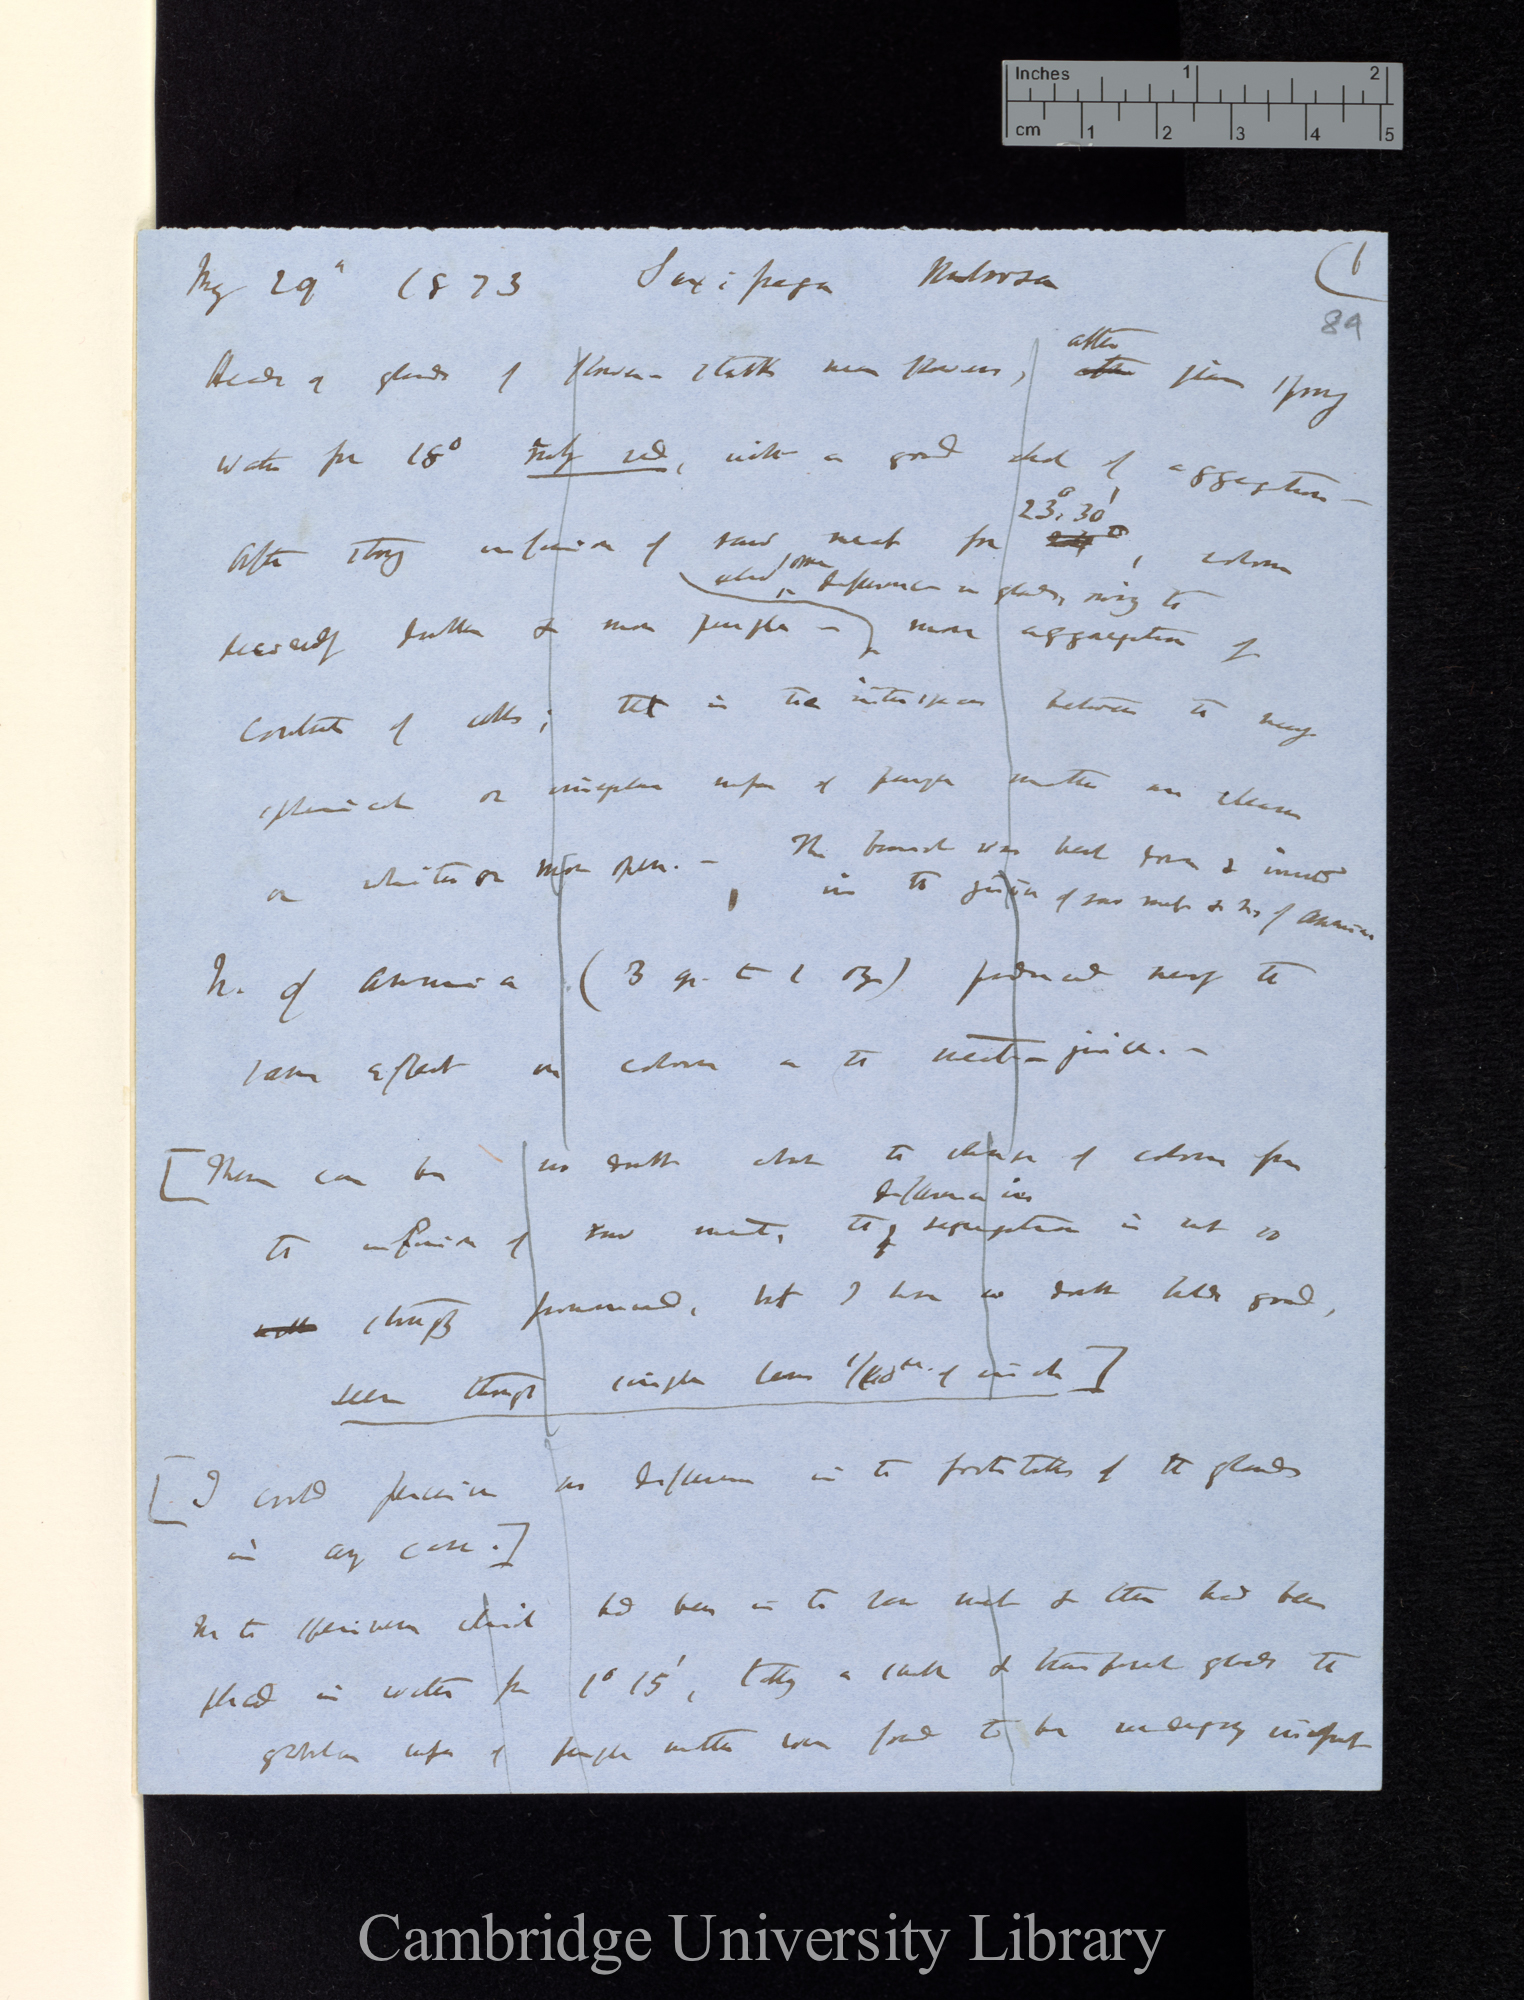 Inches 1 2
cm 1 2 3 4 5
May 29th 1873 Saxifraga umbrosa (1
89
Heads of glands of flower-stalks near flowers, after
after given strong
water for 18° red, with a good deal of aggregation —
23°.30'
After strong infusion of raw meat for , colour
difference in glands, owing to
decidedly duller & more purple — more aggregation of
contents of cells; that is the interspaces between the
spherical or irregular masses of purple matter are clearer
or whiter or more open. — The branch was bent down & inverted
in the juice of raw meat & N. of Ammonia
N. of Ammonia (3 gr. to 1 oz) produced nearly the
same effect on colour as the meat-juice. —
[There can be no doubt about the change of colour from
difference in
the infusion of raw meat, the segregation is not so
strongly pronounced, but I have no doubt holds good,
seen through single lens of inch]
[I could perceive no difference in the footstalks of the glands
in any case.]
In the specimen which had been in the raw meat & then had been
placed in water for 1° 15', & glands the
globular masses of purple matter were found to be undergoing
Cambridge University Library